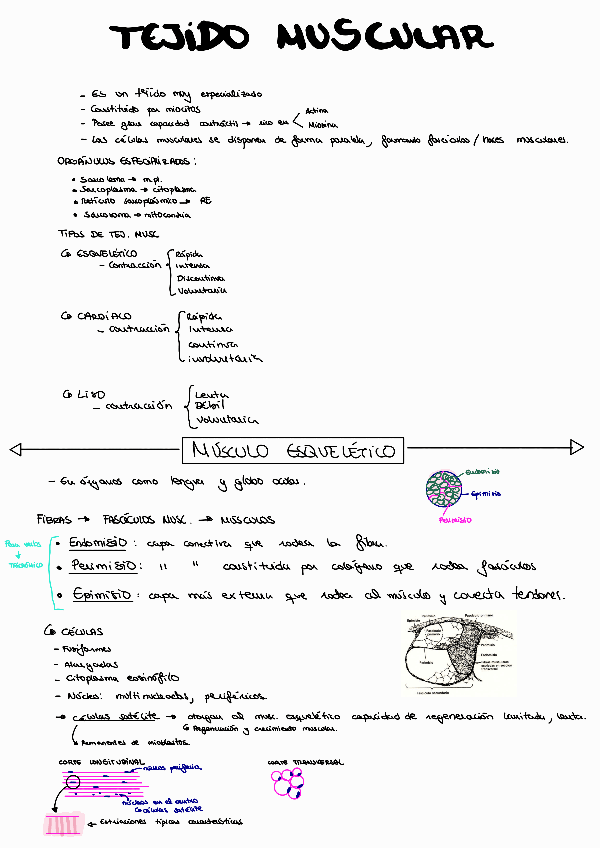 TEJIDO MUSCULAR
- Es un tejido muy especializado
- Constituido por miocitos
- Posee gran capacidad contráctil → rico en < Actina
Miosina
- Las células musculares se disponen de forma paralela, formando fascículos / haces musculares.
ORGÁNULOS ESPECIALIZADOS:
• Sarcolema → m.pl.
• Sarcoplasma → citoplasma
• Retículo sarcoplásmico → RE
• Sarcosoma → mitocondria
TIPOS DE TEJ. MUSC
↳ ESQUELÉTICO
- Contracción { Rápida
Intensa
Discontinua
Voluntaria
↳ CARDÍACO
- contracción { Rápida
Intensa
continua
involuntaria
↳ LISO
- contracción { Lenta
Débil
Voluntaria
MÚSCULO ESQUELÉTICO
- En órganos como lengua y globo ocular.
Endomisio
Epimisio
Perimisio
FIBRAS → FASCÍCULOS MUSC. → MÚSCULOS
Para verlos
↓
TRICRÓMICO
• Endomisio: capa conectiva que rodea la fibra.
• Perimisio: " " constituida por colágeno que rodea fascículos
• Epimisio: capa más externa que rodea al músculo y conecta tendones.
↳ CÉLULAS
- Fusiformes
- Alargadas
- Citoplasma eosinófilo
- Núcleo: multinucleadas, periféricos.
→ células satélite → otorgan al musc. esquelético capacidad de regeneración limitada, lenta.
↳ Regeneración y crecimiento muscular.
Remanentes de mioblastos.
CORTE LONGITUDINAL
núcleos periferia
CORTE TRANSVERSAL
núcleos en el centro
células satélite
← Estriaciones típicas características